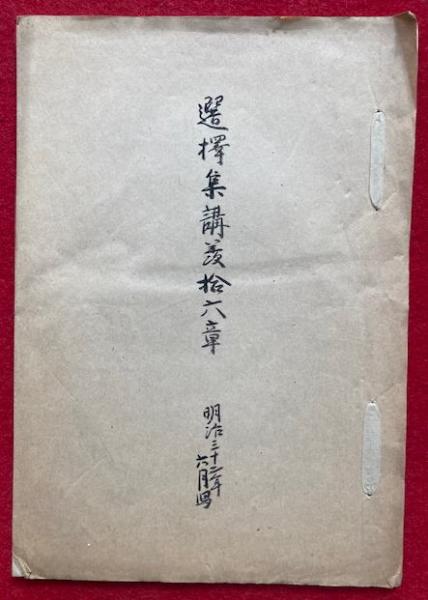 選擇集講義拾六章
明治三十二年
六月写